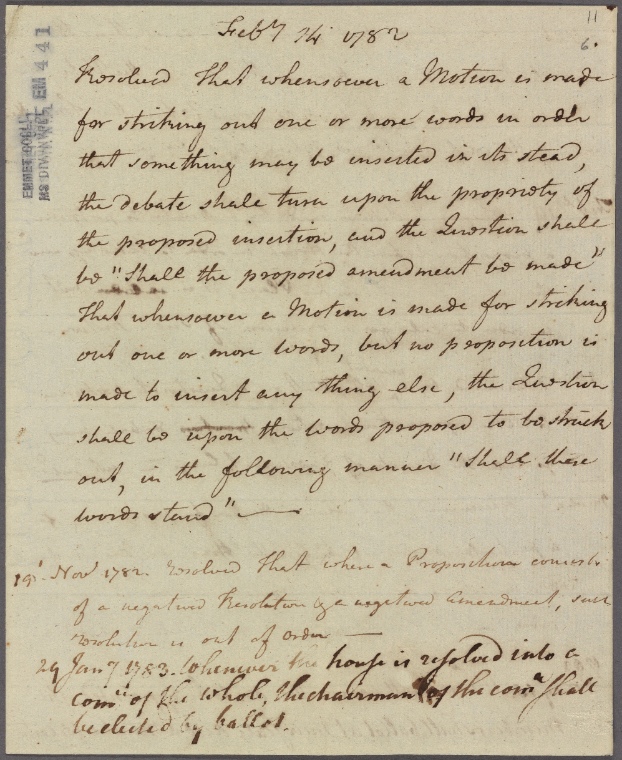 11
6.
EMMET COLL.
MS DIV. N.Y.P.L. EM 441
Feby 14 1782
Resolved That whensoever a Motion is made
for striking out one or more words in order
that something may be inserted in its stead,
the debate shall turn upon the propriety of
the proposed insertion, and the Question shall
be "Shall the proposed amendment be made"
That whensoever a Motion is made for striking
out one or more words, but no proposition is
made to insert any thing else, the Question
shall be upon the words proposed to be struck
out, in the following manner "Shall these
words stand"
19 Novr 1782. Resolved that when a Proposition consists
of a negatived Resolution & a negatived amendment, such
resolution is out of order
29 Jany 1783. Whenever the house is resolved into a
comee of the whole, the chairman of the comee shall
be elected by ballot.